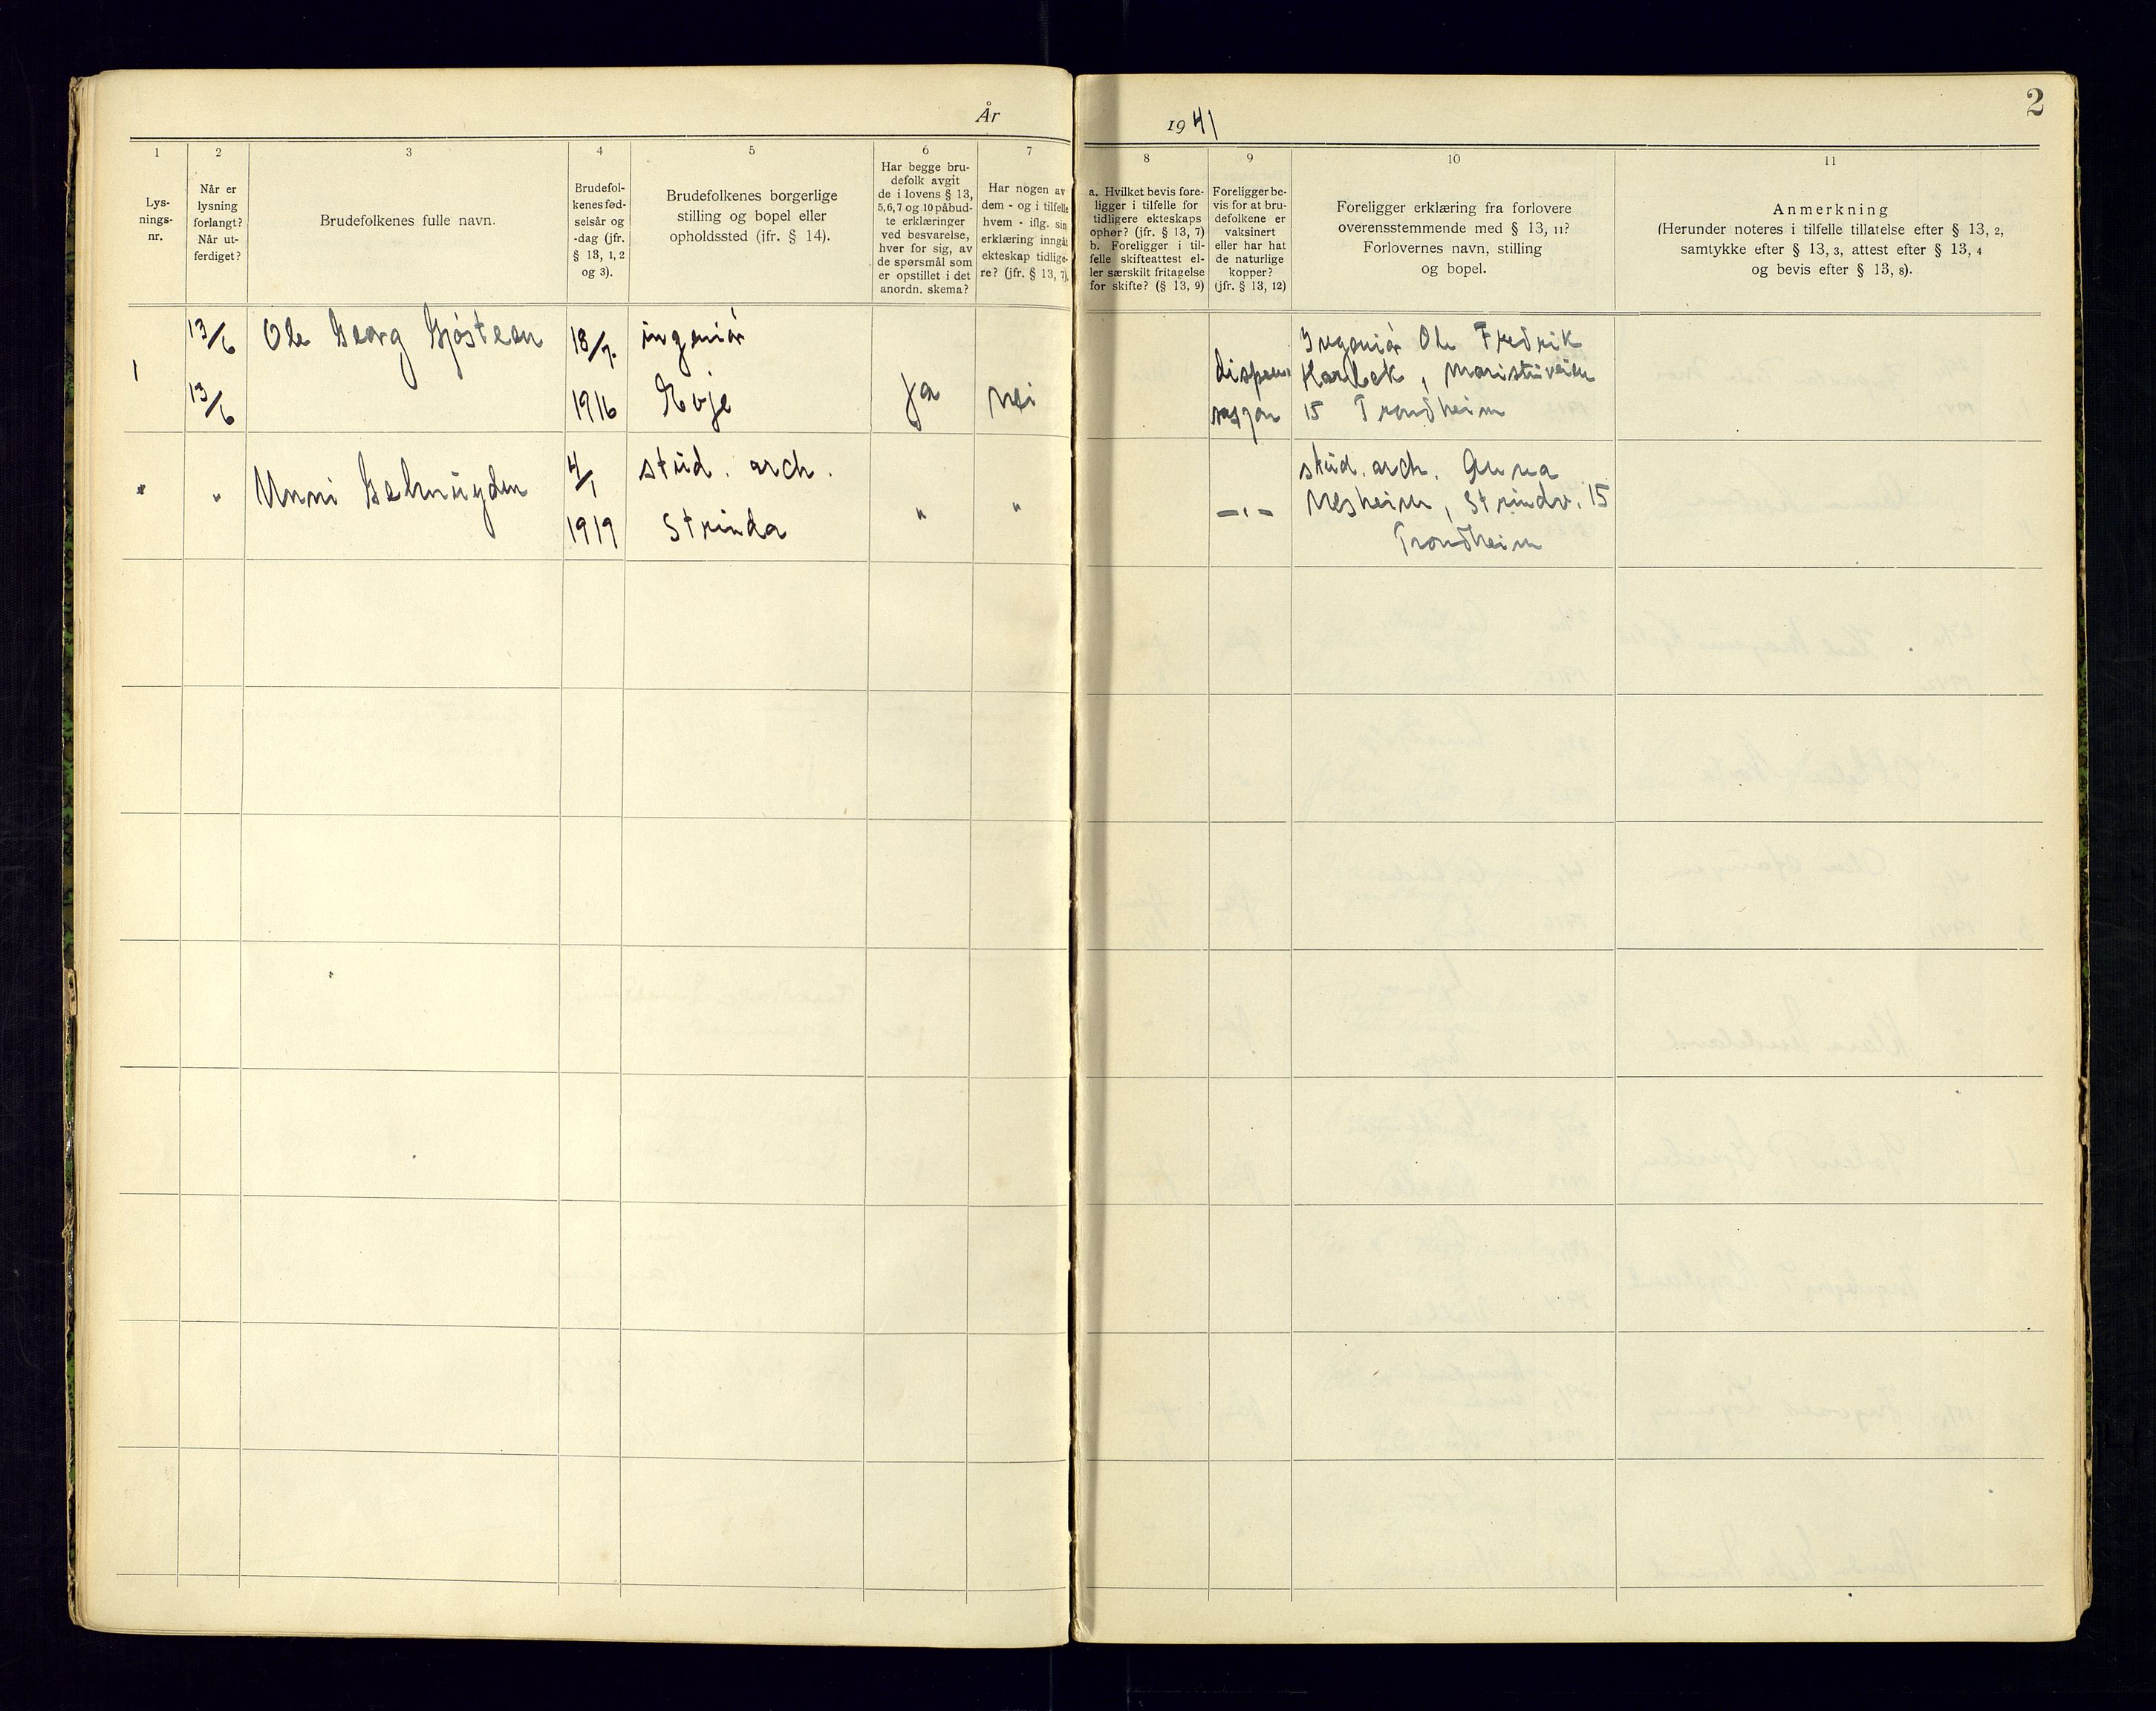 År 1941
2
1
Lys-
nings-
nr.
2
Når er
lysning
forlangt?
Når ut-
ferdiget?
3
Brudefolkenes fulle navn.
4
Brudefol-
kenes fød-
selsår og
-dag (jfr.
§ 13, 1, 2
og 3).
5
Brudefolkenes borgerlige
stilling og bopel eller
opholdssted (jfr. § 14).
6
Har begge bru-
defolk avgit
de i lovens § 13,
5, 6, 7 og 10 påbud-
te erklæringer
ved besvarelse,
hver for sig, av
de spørsmål som
er opstillet i det
anordn. skema?
7
Har nogen av
dem - og i tilfelle
hvem - iflg. sin
erklæring inngåt
ekteskap tidlige-
re? (jfr. § 13, 7).
8
a. Hvilket bevis fore-
ligger i tilfelle for
tidligere ekteskaps
ophør? (jfr. § 13, 7)
b. Foreligger i til-
felle skifteattest el-
ler særskilt fritagelse
for skifte? (§ 13, 9)
9
Foreligger be-
vis for at bru-
defolkene er
vaksinert
eller har hat
de naturlige
kopper?
(jfr. § 13, 12)
10
Foreligger erklæring fra forlovere
overensstemmende med § 13, 11?
Forlovernes navn, stilling
og bopel.
11
Anmerkning
(Herunder noteres i tilfelle tillatelse efter § 13, 2,
samtykke efter § 13, 3, attest efter § 13, 4
og bevis efter § 13, 8).
1
13/6
13/6
Ole Georg Gjøsteen
18/7.
1916
ingeniør
Evje
ja
nei
dispen-
sasjon
Ingeniør Ole Fredrik
15 Trondheim
"
"
Unni
4/1
1919
stud. arch.
Strinda
"
"
-"-
stud. arch.
Nesheim, Strindv. 15
Trondheim